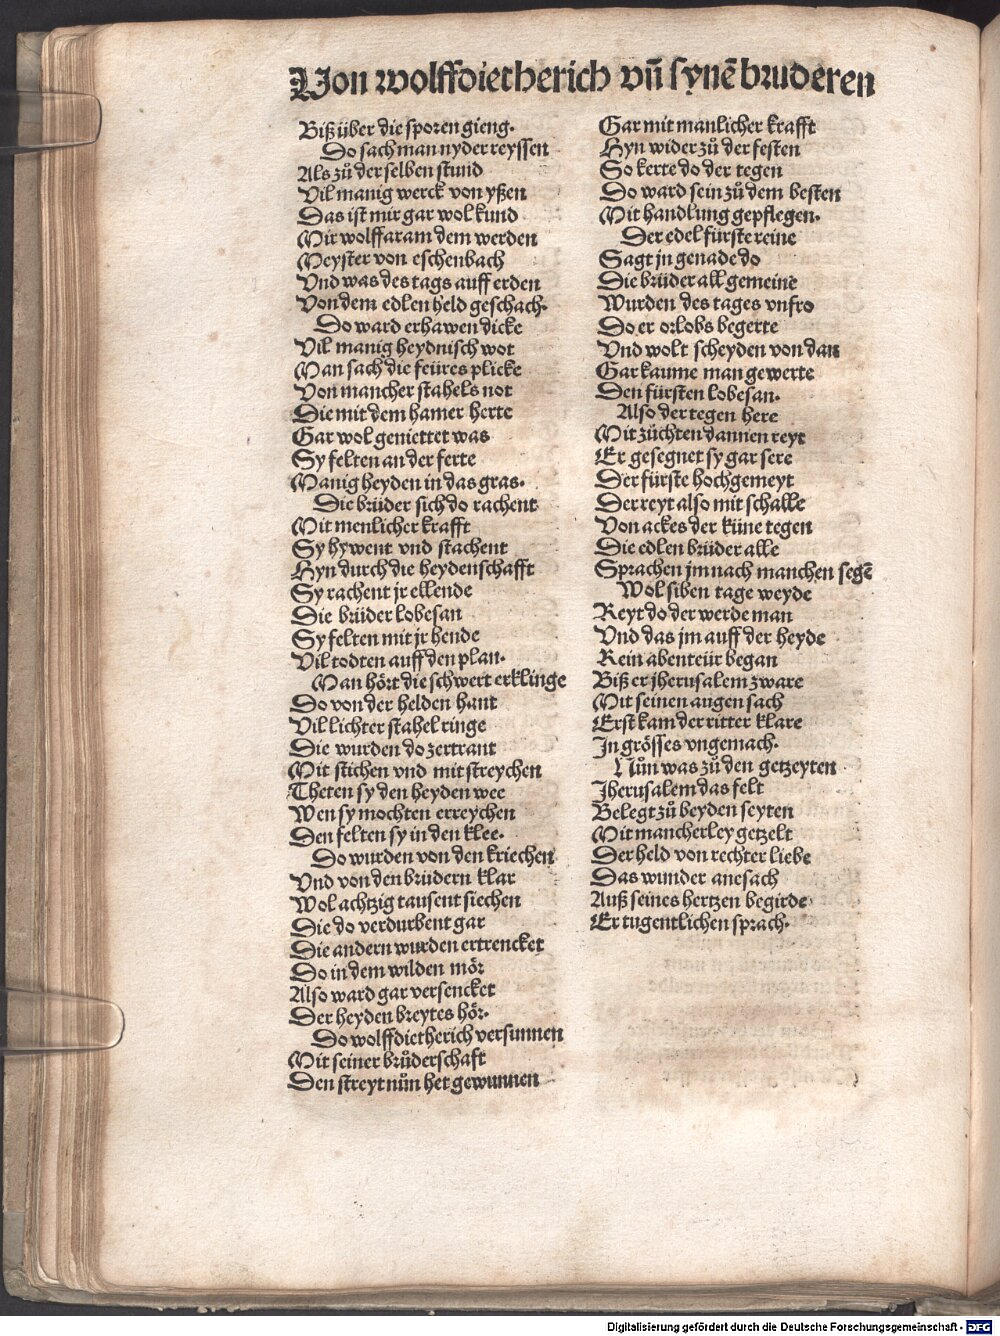 Von wolffdietherich vñ synē bruderen
Biß über die sporen gieng.
Do sach man nyder reyssen
Als zů der selben stund
Vil manig werck von yßen
Das ist mir gar wol kund
Mir wolffaram dem werden
Meyster von eschenbach
Vnd was des tags auff erden
Von dem edlen held geschach.
Do ward erhawen dicke
Vil manig heydnisch wot
Man sach die feüres plicke
Von mancher stahels not
Die mit dem hamer herte
Gar wol geniettet was
Sy felten an der ferte
Manig heyden in das gras.
Die brüder sich do rachent
Mit menlicher krafft
Sy hywent vnd stachent
Hyn durch die heydenschafft
Sy rachent jr ellende
Die brüder lobesan
Sy felten mit jr hende
Vil todten auff den plan.
Man hört die schwert erklinge
Do von der helden hant
Vil lichter stahel ringe
Die wurden do zertrant
Mit stichen vnd mit streychen
Theten sy den heyden wee
Wen sy mochten erreychen
Den felten sy in den klee.
Do wurden von den kriechen
Vnd von den brüdern klar
Wol achtzig tausent siechen
Die do verdurbent gar
Die andern wurden ertrencket
Do in dem wilden mör
Also ward gar versencket
Der heyden breytes hör.
Do wolffdietherich versunnen
Mit seiner brůderschaft
Den streyt nůn het gewunnen
Gar mit manlicher krafft
Hyn wider zů der festen
So kerte do der tegen
Do ward sein zů dem besten
Mit handlung gepflegen.
Der edel fürste reine
Sagt jn genade do
Die brüder all gemeine
Wurden des tages vnfro
Do er orlobs begerte
Vnd wolt scheyden von dan
Gar kaume man gewerte
Den fürsten lobesan.
Also der tegen here
Mit züchten dannen reyt
Er gesegnet sy gar sere
Der fürste hochgemeyt
Der reyt also mit schalle
Von ackes der küne tegen
Die edlen brüder alle
Sprachen jm nach manchen segē
Wol siben tage weyde
Reyt do der werde man
Vnd das jm auff der heyde
Kein abenteür began
Biß er jherusalem zware
Mit seinen augen sach
Erst kam der ritter klare
In grösses vngemach.
Nůn was zů den getzeyten
Jherusalem das felt
Belegt zů beyden seyten
Mit mancherley getzelt
Der held von rechter liebe
Das wunder anesach
Auß seines hertzen begirde
Er tugentlichen sprach.
Digitalisierung gefördert durch die Deutsche Forschungsgemeinschaft - DFG